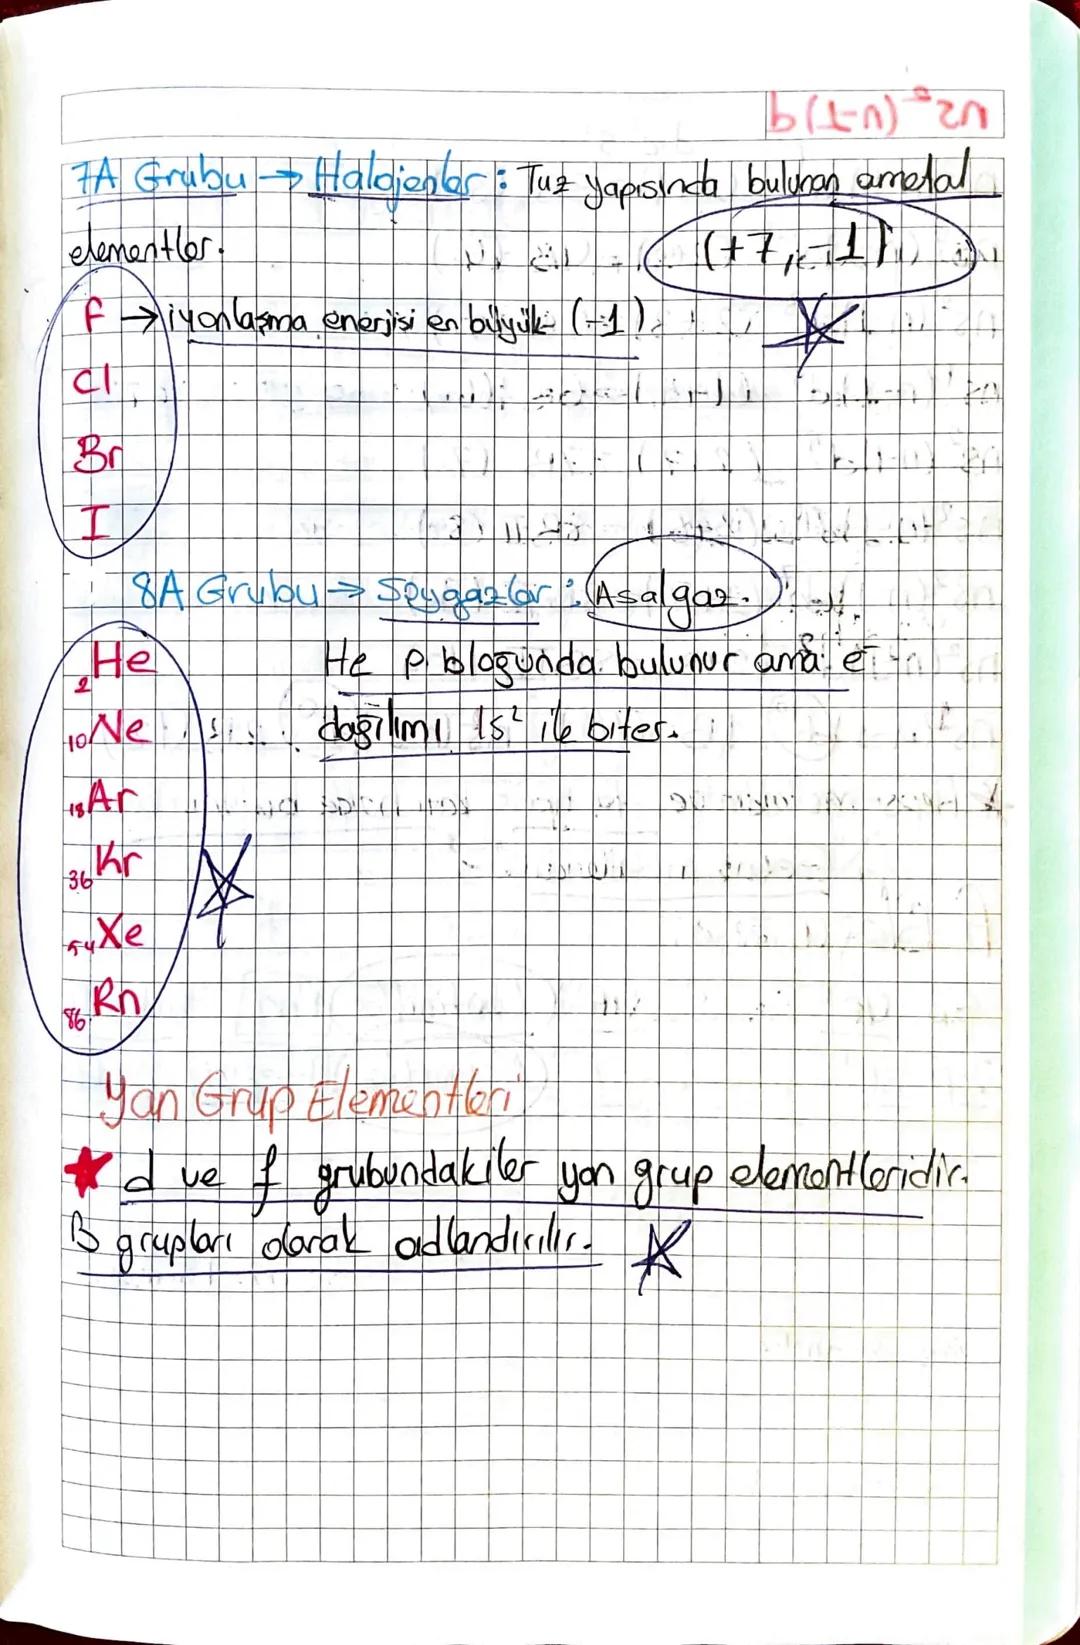 7A Grubu → Halojenler : Tuz yapısında bulunan ametal
elementler.
(+7, -1)
F → iyonlaşma enerjisi en büyük (-1)
Cl
Br
I
8A Grubu → Soygazlar : Asalgaz.
2He
He p blogunda bulunur ama e-
10Ne
dağılımı 1s² ile biter.
18Ar
36Kr
54Xe
86Rn
Yan Grup Elementleri
d ve f grubundakiler yan grup elementleridir.
B grupları olarak adlandırılır.